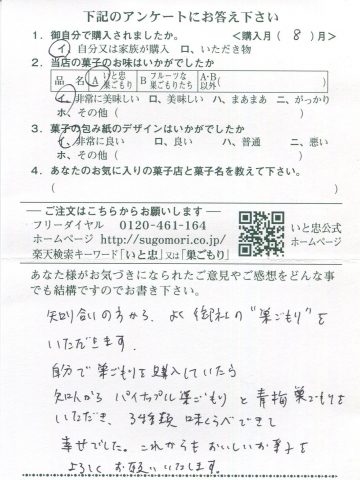 下記のアンケートにお答え下さい
1．御自分で購入されましたか。 ＜購入月（ 8 ）月＞
イ、自分又は家族が購入 ロ、いただき物
2．当店の菓子のお味はいかがでしたか
品 名 A いと忠巣ごもり B フルーツな巣ごもりたち A・B以外（ ）
イ、非常に美味しい ロ、美味しい ハ、まあまあ ニ、がっかり
ホ、その他（ ）
3．菓子の包み紙のデザインはいかがでしたか
イ、非常に良い ロ、良い ハ、普通 ニ、悪い
ホ、その他（ ）
4．あなたのお気に入りの菓子店と菓子名を教えて下さい。
（ ）
― ご注文はこちらからお願いします ―
フリーダイヤル 0120-461-164
ホームページ http://sugomori.co.jp/
楽天検索キーワード「いと忠」又は「巣ごもり」
いと忠公式
ホームページ
あなた様がお気づきになられたご意見やご感想をどんな事
でも結構ですのでお書き下さい。
知り合いの方から、よく御社の"巣ごもり"を
いただきます．
自分で巣ごもりを購入していたら
知人から パイナップル巣ごもり と 青梅巣ごもりを
いただき、3種類 味くらべできて
幸せでした。これからもおいしいお菓子を
よろしくお願いいたします。